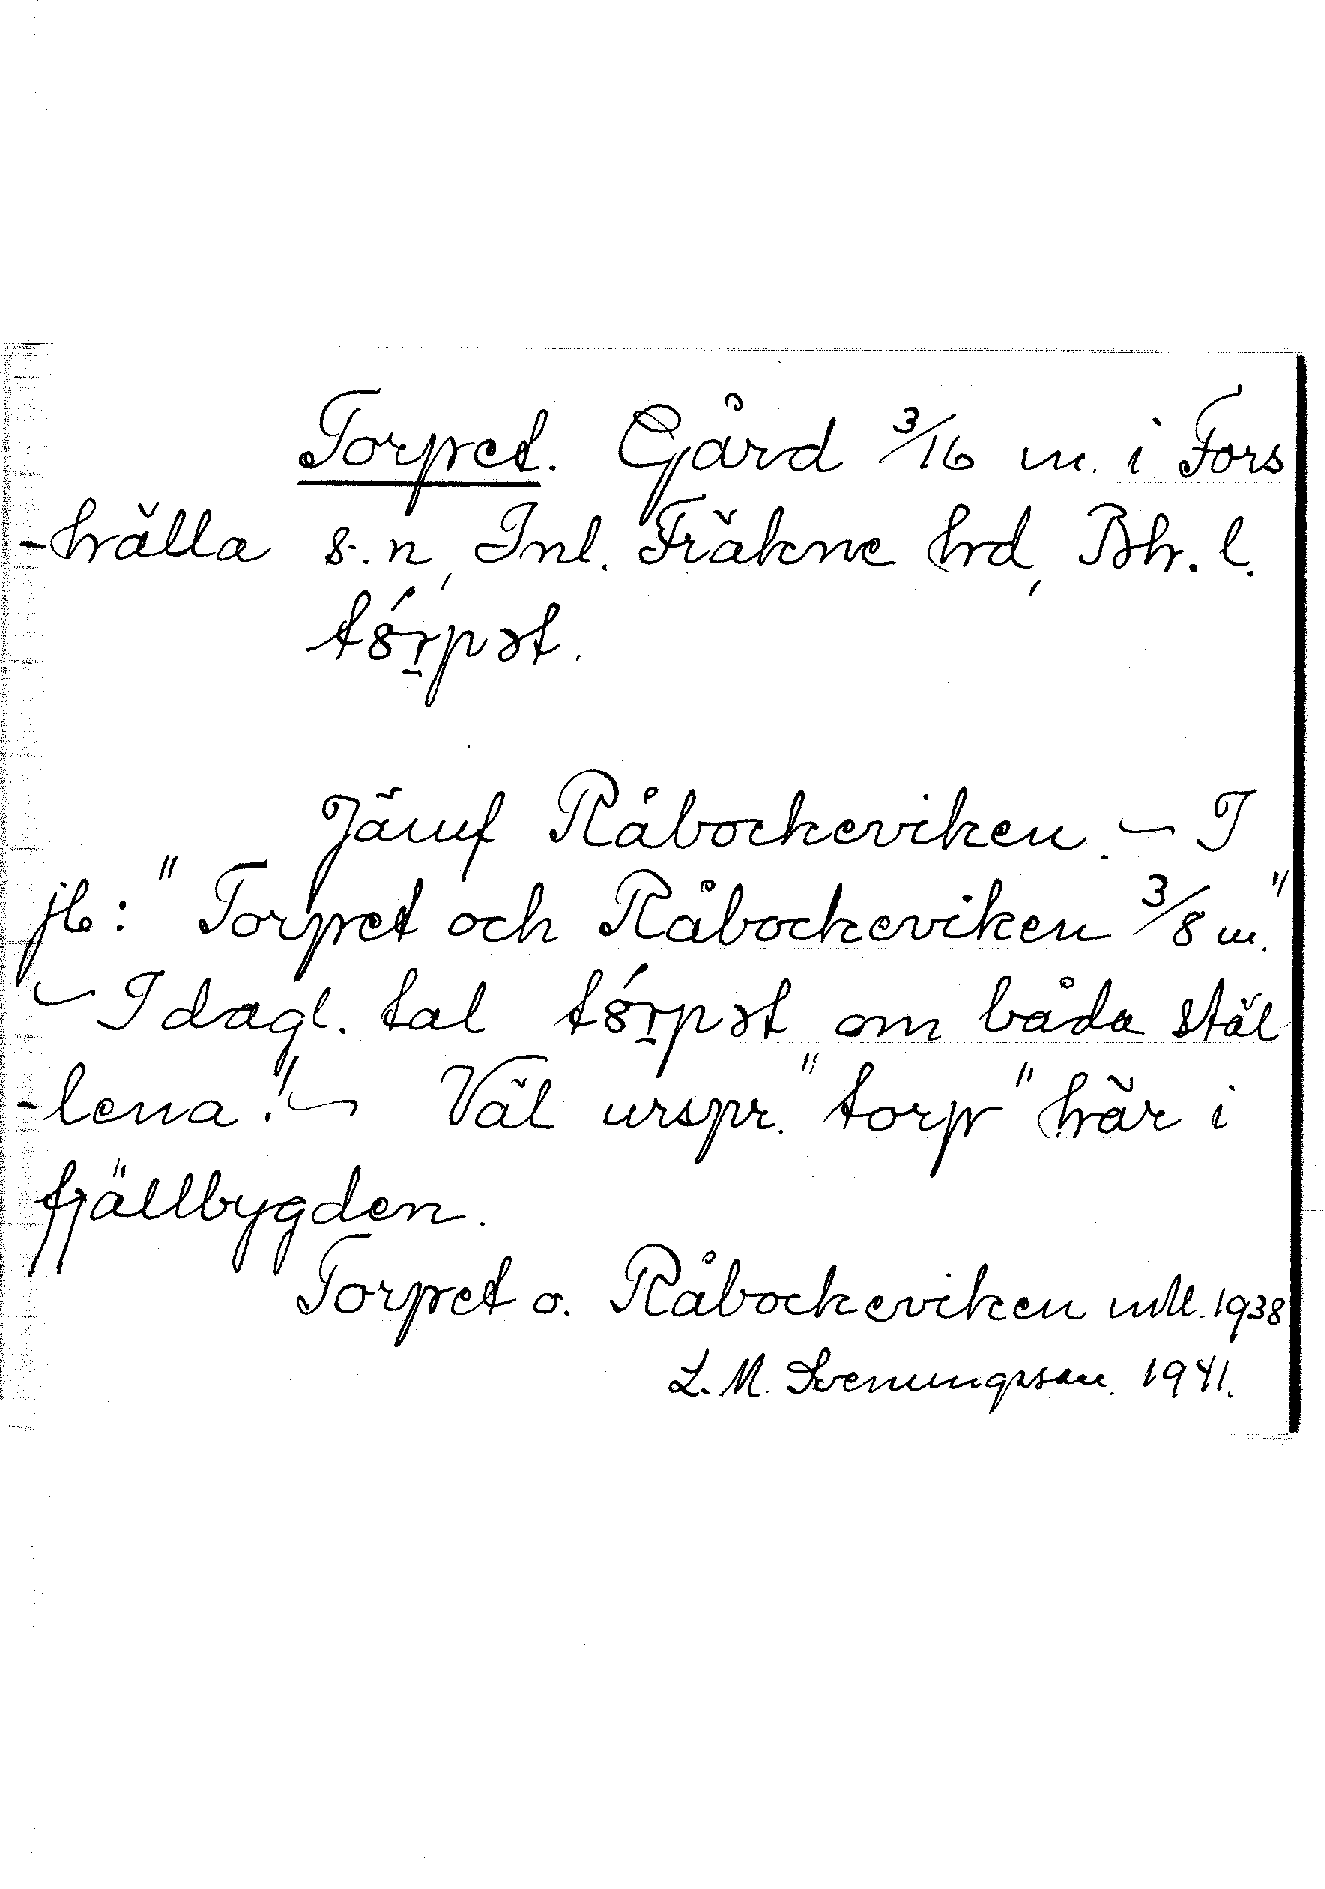 Torpet. Gård 3/16 m. i Fors
-hälla s.n, Inl. Fräkne hrd, Bh. l.
tórpət.
Jämf Råbockeviken. – I
jb: "Torpet och Råbockeviken 3/8 m."
– I dagl. tal tórpət om båda stäl
-lena! – Väl urspr. "torp" här i
fjällbygden.
Torpet o. Råbockeviken mtl. 1938
L. M. Svenungsson. 1941.